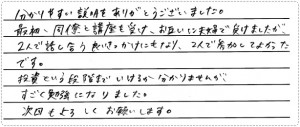 分かりやすい説明をありがとうございました。
最初、同僚と講座を受け、お互いに夫婦で受けましたが、
2人で話し合う良いきっかけにもなり、2人で参加してよかった
です。
投資という段階まで いけるか分かりませんが、
すごく勉強になりました。
次回もよろしくお願いします。